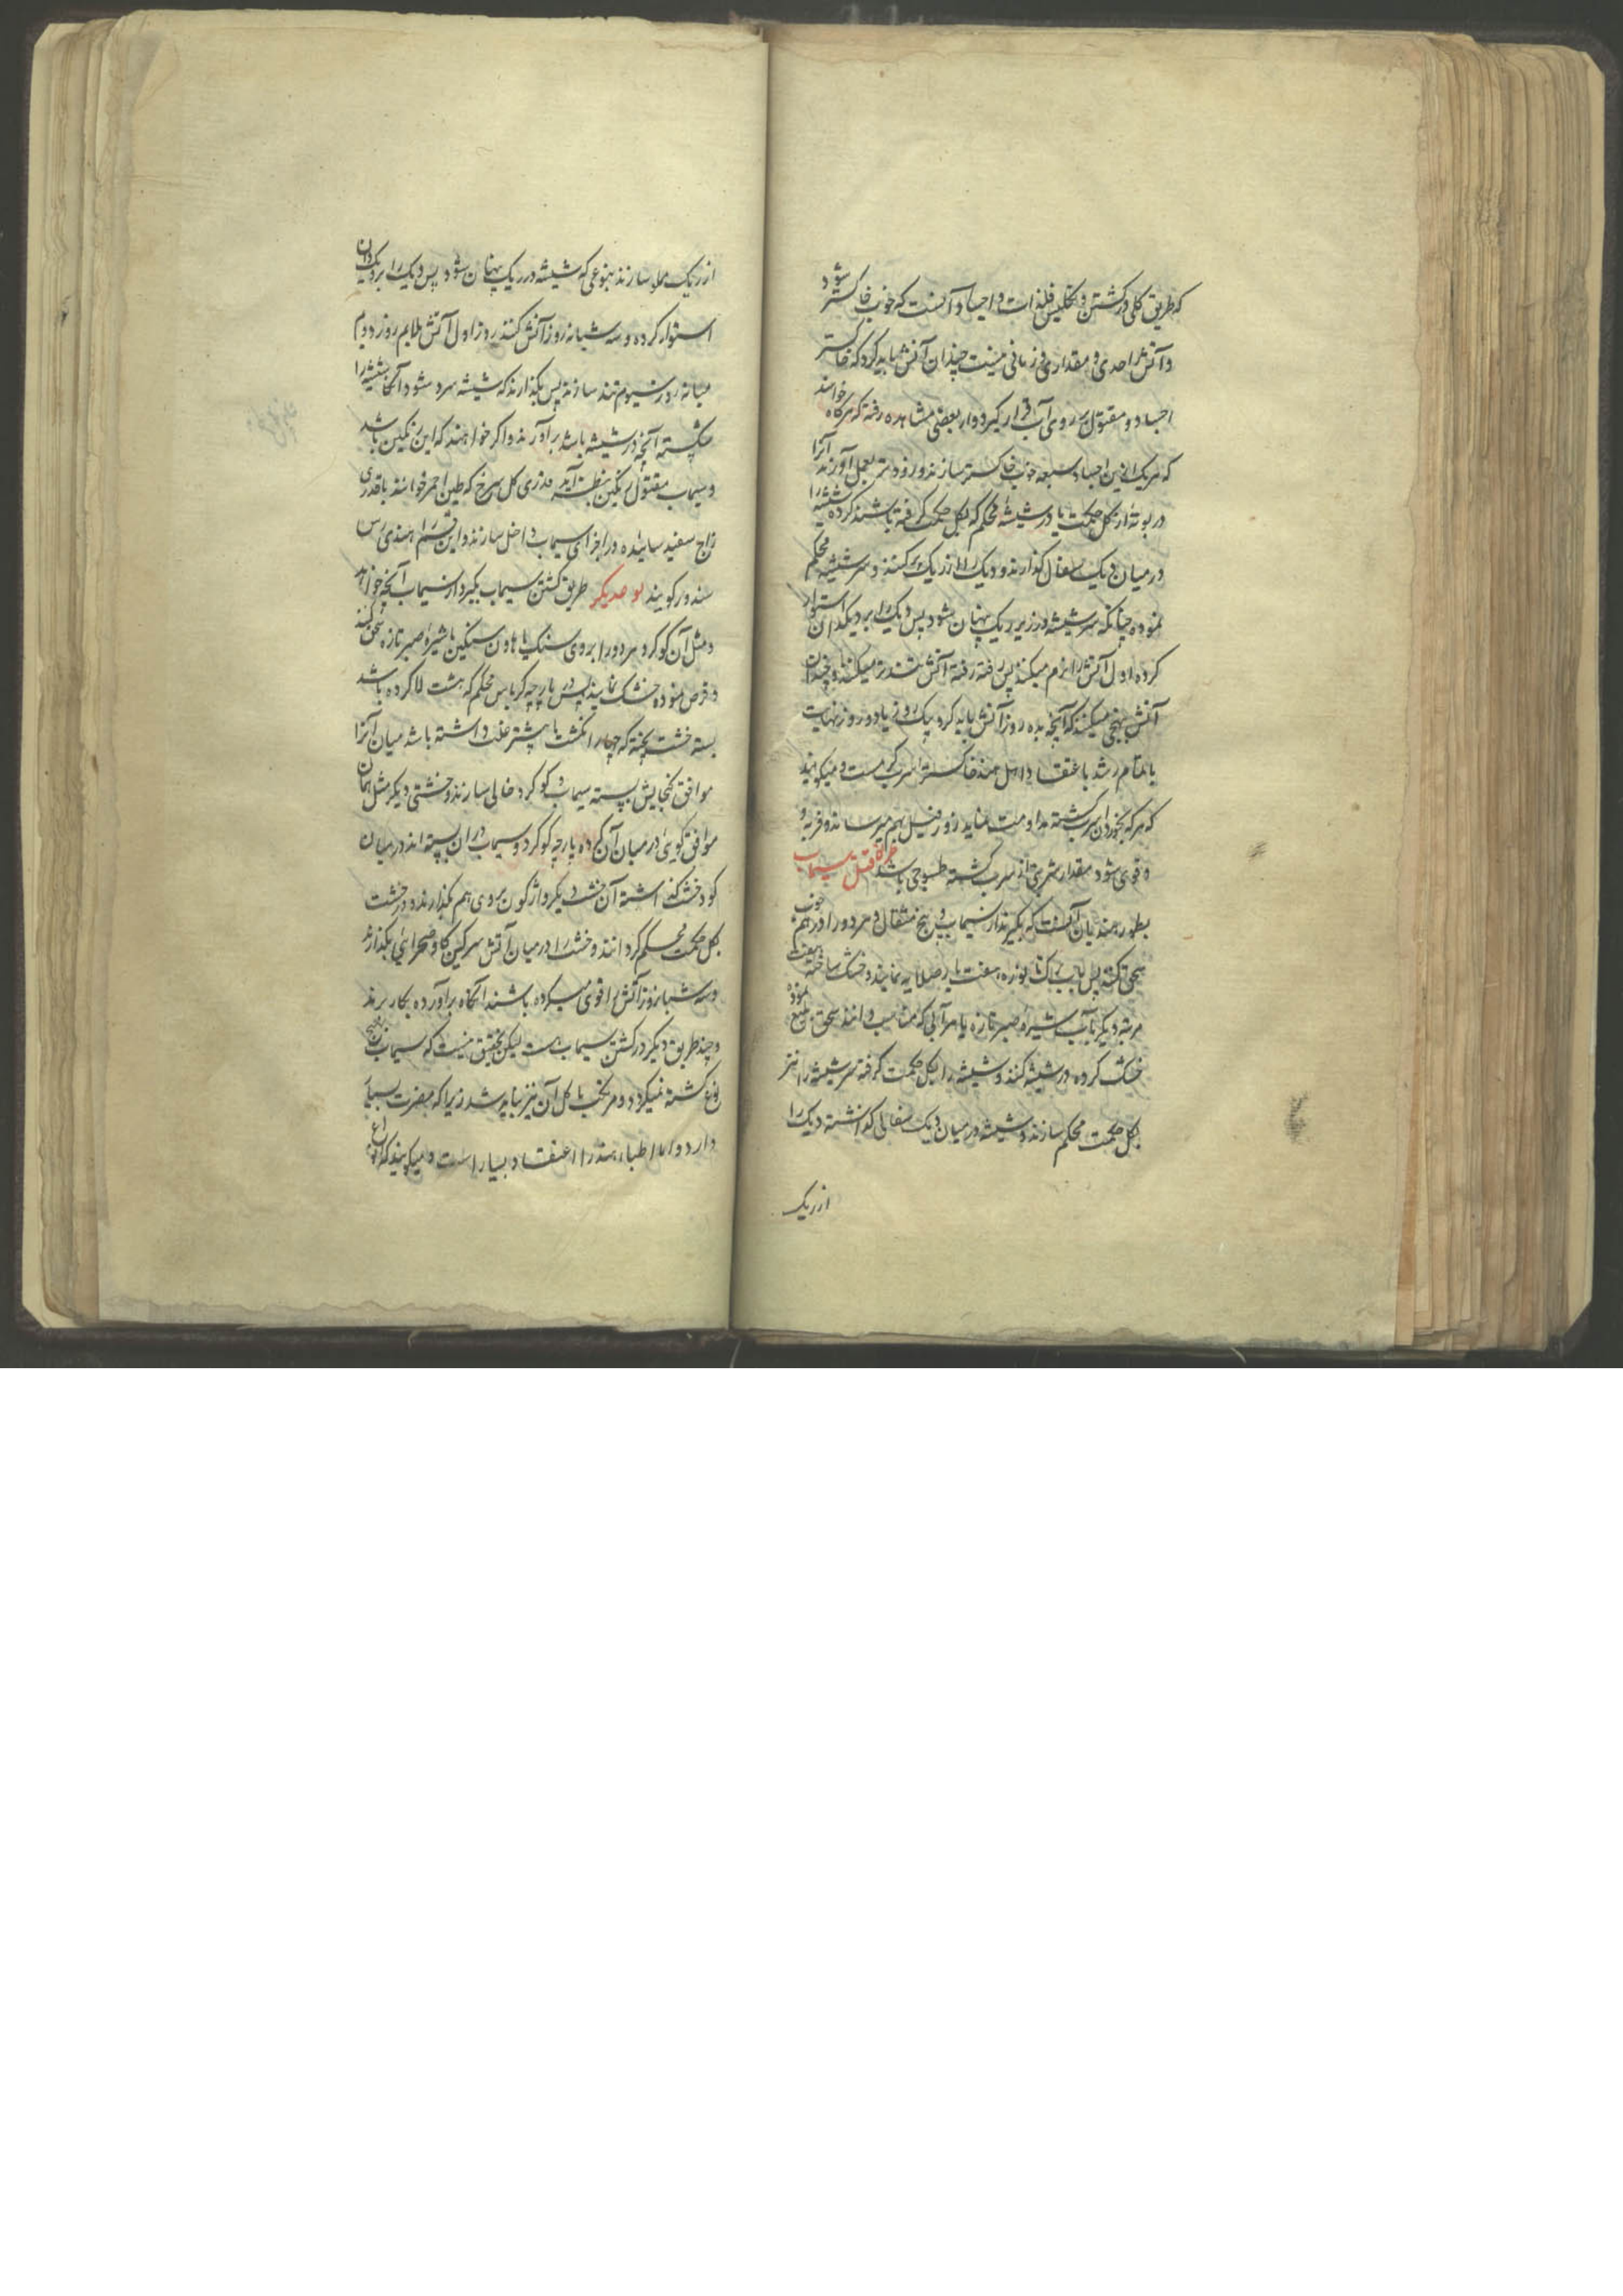 که طریق کلی در کشتن و تکلیس فلزات و اجساد آنست که خوب خاکستر شود
و آتش را حدی و مقداری و زمانی نیست چندان آتش باید کرد که خاکستر
اجساد و مقتول بر روی آب قرار گیرد و از بعضی مشاهده رفته که هرگاه خواهند
که هر یک ازین اجساد سبعه خوب خاکستر سازند و زودتر بعمل آورند آنرا
در بوته از گل حکمت یا در شیشه محکم که بگل حکمت گرفته باشند کرده شیشه را
در میان دیک سفال گذارند و دیک را از ریک پر کنند و سر شیشه محکم
نموده چنانکه سر شیشه در زیر ریک پنهان شود پس دیک را بر دیکدان استوار
کرده اول آتش را نرم میکنند پس رفته رفته آتش تندتر میکنند و چندان
آتش بنهجی میکنند که آنچه بده روز آتش باید کرد بیک روز یا دو روز نهایت
باتمام رسد باعتقاد اهل هند خاکستر اسرب گرمست و میگویند
که هر که بخوردن اسرب کشته مداومت نماید زور فیل بهم میرساند و فربه و
و قوی شود مقدار شربتی از اسرب کشته طسوجی باشد قتل سیماب
بطور هندیان آنست که بگیرند از سیماب پنج مثقال و هر دو را در هم خوب
سحق کنند پس بآب هفت بار صلایه نمایند و خشک ساخته هفت
مرتبه دیگر بآب شیره صبر تازه یا هر آبی که مناسب دانند سحق بلیغ نموده
خشک کرده در شیشه کنند و شیشه را بگل حکمت گرفته سر شیشه را نیز
بگل حکمت محکم سازند و شیشه در میان دیک سفالی گذاشته دیک را
از ریک
از ریک مملو سازند بنوعی که شیشه در ریک پنهان شود پس دیک را بر دیکدان
استوار کرده و سه شبانه روز آتش کنند روز اول آتش ملایم روز دویم
میانه روز سیوم تند سازند پس بگذارند که شیشه سرد شود آنگاه شیشه را
شکسته آنچه در شیشه باشد برآورند و اگر خواهند که این رنگین باشد
و سیماب مقتول رنگین بنظر آید قدری گل سرخ که طین احمر خوانند با قدری
زاج سفید ساییده در اجزای سیماب داخل سازند و این قسم را هندی رس
سندور گویند نوع دیگر طریق کشتن سیماب بگیرد از سیماب آنچه خواهد
و مثل آن گوگرد هر دو را بر روی سنگ یا هاون سنگین با شیره صبر تازه سحق کنند
و قرص نموده خشک نمایند پس در پارچه کرباس محکم که هشت لا کرده باشد
بسته خشت پخته که چهار انگشت یا بیشتر غلظت داشته باشد میان آنرا
موافق گنجایش بسته سیماب و گوگرد خالی سازند و خشتی دیگر مثل همان
موافق گوی در میان آن کرده پارچه گوگرد و سیماب در آن بسته اند در میان
گود خشت گذاشته آن خشت دیگر واژگون بر روی هم بگذارند و درز خشت
بگل حکمت محکم گردانند و خشت را در میان آتش سرگین گاو صحرایی بگذارند
و سه شبانروز آتش را قوی میکرده باشند آنگاه برآورده بکار برند
و چند طریق دیگر در کشتن سیماب هست لیکن تحقیق نیست که سیماب بهیچ
نوع کشته نمیگردد و مرتکب باکل آن نیز نباید شد زیرا که مضرت بسیار
دارد و اما اطباء هند را اعتقاد بسیار است و میگویند که انواع